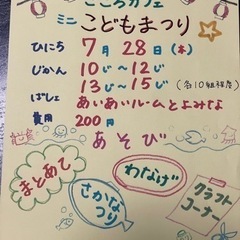 こころカフェ
ミニ こどもまつり
ひにち 7月28日(木)
じかん 10じ~12じ
13じ~15じ (各10組程度)
ばしょ あいあいルームとよみな
費用 200円
あそび
まとあて
わなげ
さかなつり
クラフト
コーナー